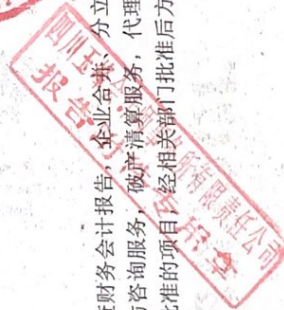 财务会计报告，企业合并、分立
咨询服务，破产清算服务，代理
批准的项目，经相关部门批准后方
四川 所有限责任公司
报告 专用章